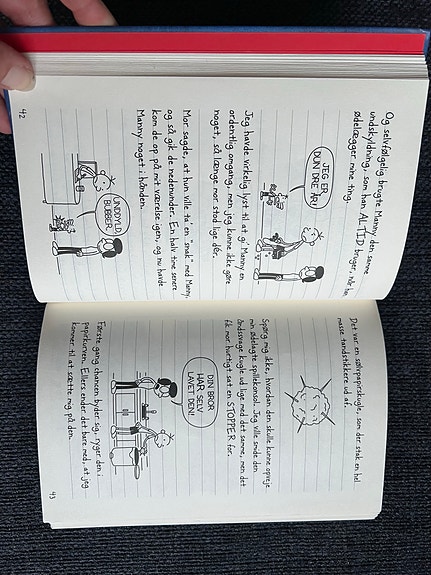 Og selvfølgelig brugte Manny den samme
undskyldning, som han ALTID bruger, når han
ødelægger mine ting.
JEG ER
KUN DRE ÅR!
Jeg havde virkelig lyst til at gi' Manny en
ordentlig omgang, men jeg kunne ikke gøre
noget, så længe mor stod lige dér.
Mor sagde, at hun ville ta' en "snak" med Manny,
og så gik de nedenunder. En halv time senere
kom de op på mit værelse igen, og nu havde
Manny noget i hånden.
UNDDYLD,
BUBBER.
42
Det var en sølvpapirskugle, som der stak en hel
masse tandstikkere ud af.
Spørg mig ikke, hvordan den skulle kunne opveje
min ødelagt spillekonsol. Jeg ville smide den
åndssvage kugle ud lige med det samme, men det
fik mor hurtigt sat en STOPPER for.
DIN BROR
HAR SELV
LAVET DEN!
Første gang chancen byder sig, ryger den i
papirkurven. Ellers ender det bare med, at jeg
kommer til at sætte mig på den.
43